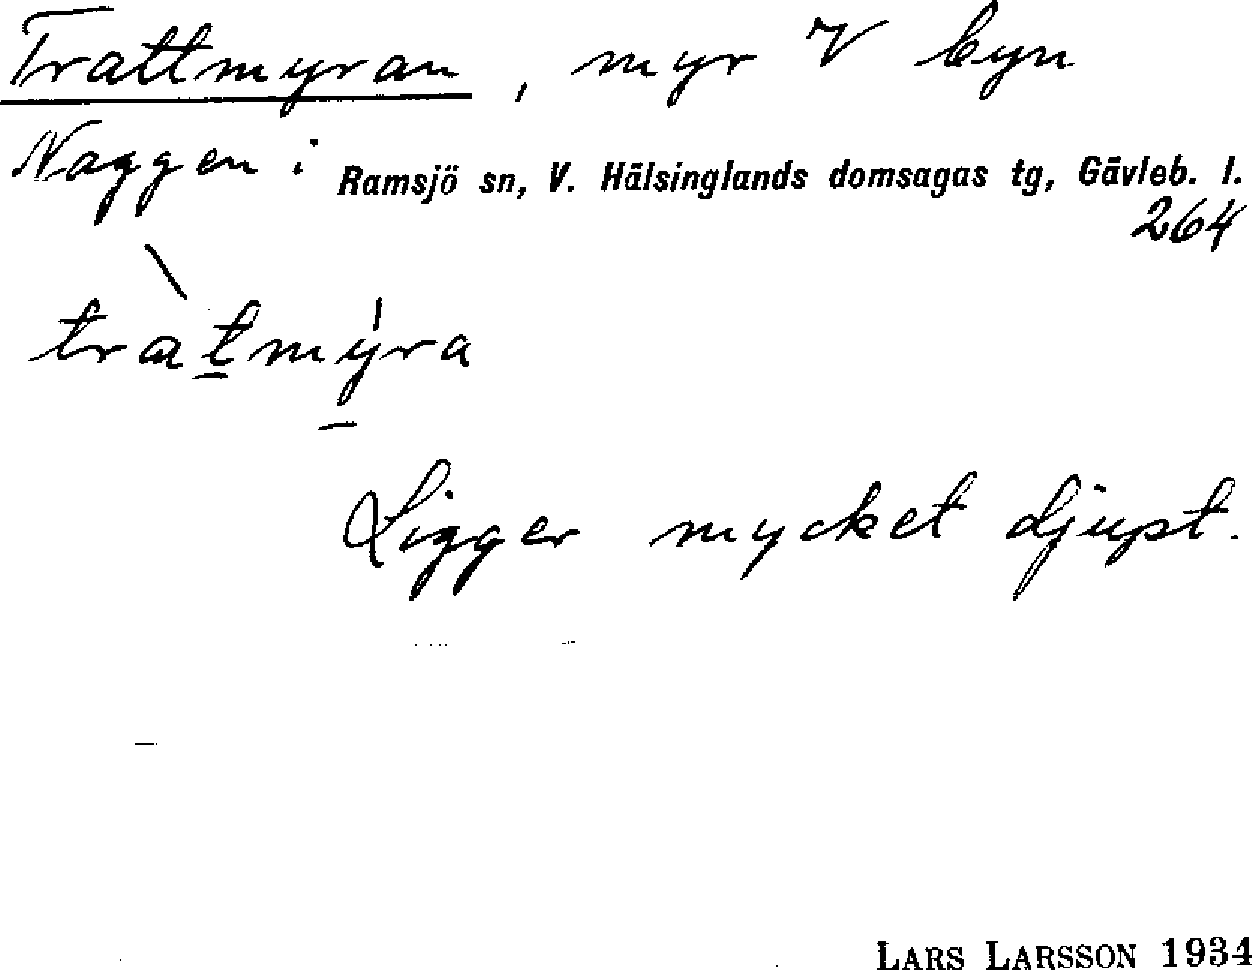 Trattmyran, myr V byn
Naggen i Ramsjö sn, V. Hälsinglands domsagas tg, Gävleb. l.
264
tràtmýra
Ligger mycket djupt.
LARS LARSSON 1934